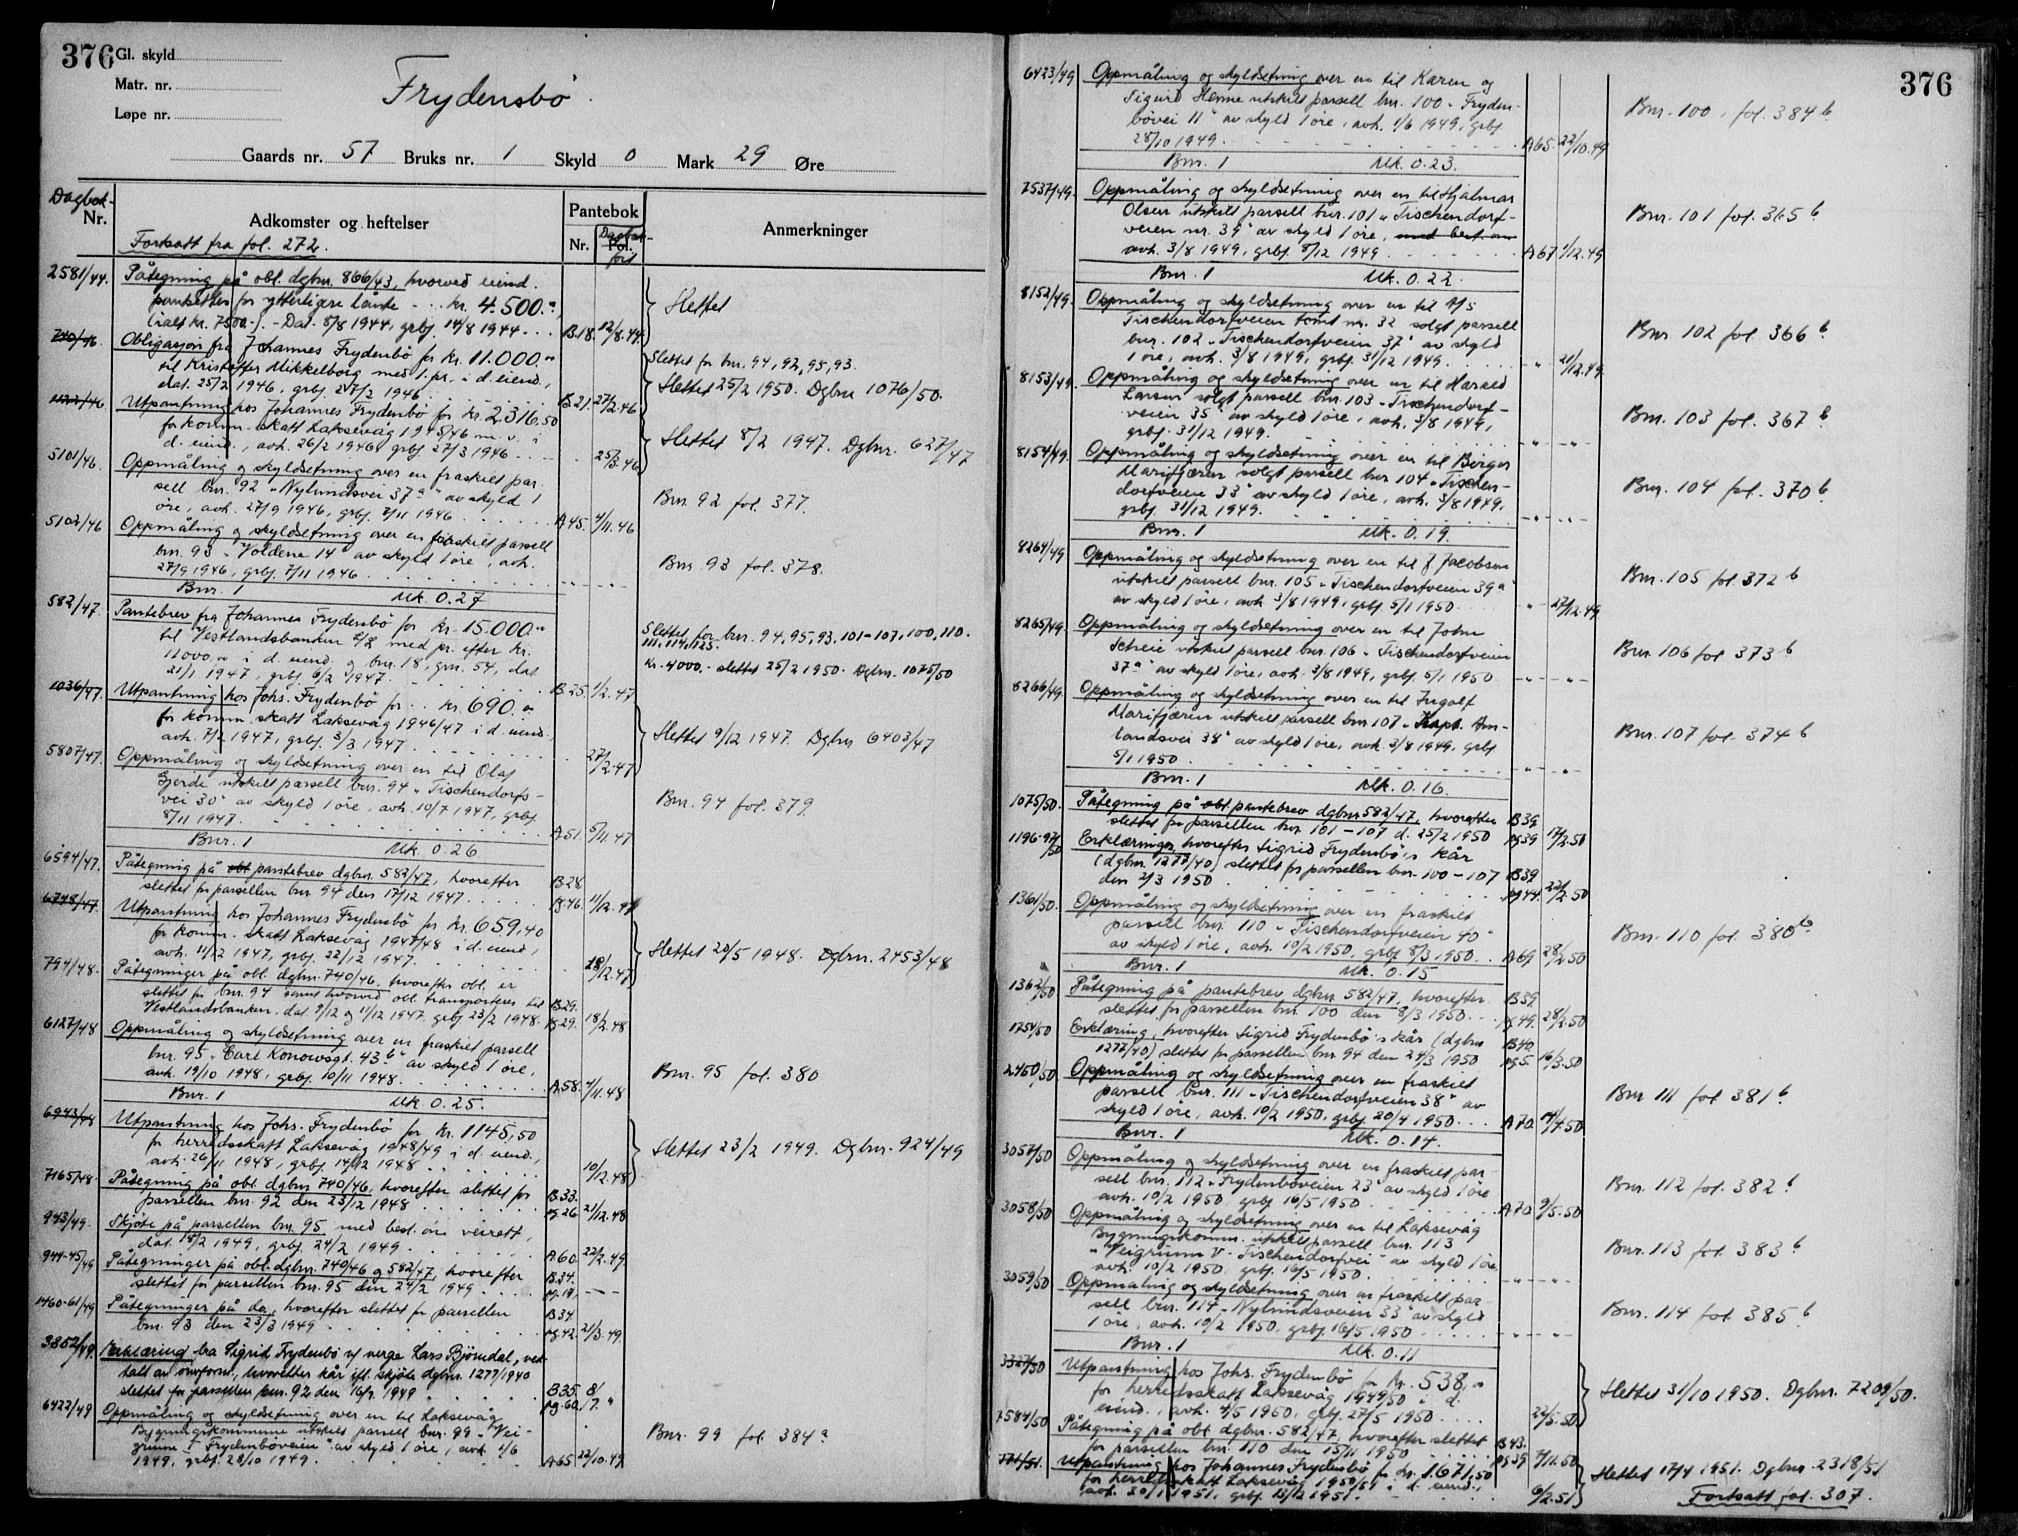 376
Gl. skyld
Matr. nr.
Løpe nr.
Frydensbö
Gaards nr. 57 Bruks nr. 1 Skyld 0 Mark 29 Øre
Dagbok-
Nr.
Adkomster og heftelser
Pantebok
Nr.
Fol.
Dagbok-
ført
Anmerkninger
Fortsatt fra fol. 272.
2581/44. Påtegning på obl. dgbnr. 866/43, hvorved eiend.
pantsettes for ytterligere lånte - .. kr. 4.500.-,
(ialt kr. 7500.-). - Dat. 5/8 1944, grbf 14/8 1944 ... B.18. 12/8.44.
Slettet
740/46. Obligasjon fra Johannes Frydenbö for kr. 11.000.-
til Kristoffer Mikkelborg med 1. pr. i d. eiend.,
dat. 25/2 1946, grbf. 27/2 1946 B.21. 27/2.46
Slettet for bnr. 94, 92, 95, 93.
Slettet 25/2 1950. Dgbnr 1076/50.
1122/46 Utpantning hos Johannes Frydenbö for kr. 2316,50
for komm. skatt Laksevåg 1945/46 m.v. i
d. eiend., avh. 26/2 1946, grbf 27/3 1946 25/3.46
Slettet 8/2 1947. Dgbnr. 627/47
5101/46. Oppmåling og skyldsetning over en fraskilt par-
sell bnr. 92 "Nylundsvei 37a" av skyld 1
öre, avh. 27/9 1946, grbf. 7/11 1946 A45. 4/11.46
Bnr. 92 fol. 377.
5102/46 Oppmåling og skyldsetning over en fraskilt parsell
bnr. 93 "Voldene 14" av skyld 1 öre, avh.
27/9 1946, grbf. 7/11 1946 " - " -
Bnr. 93 fol. 378.
Bnr. 1 Mk. 0.27
582/47. Pantebrev fra Johannes Frydenbö for kr. 15.000.-
til Vestlandsbanken A/S med pr. efter kr.
11000,00 i d. eiend. og bnr. 18, gnr. 54, dat.
31/1 1947, grbf 6/2 1947. B.25. 1/2.47
Slettet for bnr. 94, 95, 93, 101-107, 100, 110.
111, 114, 123.
Kr. 4000.- slettet 25/2 1950. Dgbnr. 1075/50
1036/47. Utpantning hos Johs. Frydenbö for .. kr. 690.-
for komm. skatt Laksevåg 1946/47 i d. eiend.,
avh. 7/2 1947, grbf. 3/3 1947 27/2.47
Slettet 9/12 1947. Dgbnr 6403/47
5807/47. Oppmåling og skyldsetning over en til Olaf
Gjerde utskilt parsell bnr. 94 "Tischendorfs-
vei 30" av skyld 1 öre, avh. 10/7 1947, grbf.
8/11 1947. A51. 5/11.47
Bnr. 94 fol. 379.
Bnr. 1 Mk. 0.26
6594/47. Påtegning på obl pantebrev dgbnr. 582/47, hvorefter
slettet for parsellen bnr 94 den 17/12 1947. B28 pg.46. 11/12.47
6748/47. Utpantning hos Johannes Frydenbö for kr. 659,40
for komm. skatt Laksevåg 1947/48 i d. eiend.,
avh. 11/12 1947, grbf. 22/12 1947. 18/12.47
Slettet 20/5 1948. Dgbnr. 2453/48
794/48. Påtegninger på obl. dgbnr. 740/46, hvorefter obl. er
slettet for bnr. 94 samt hvorved obl. transporteres til
Vestlandsbanken. dat. 9/12 og 11/12 1947. grbf 23/2 1948. B29. pg29. 18/2.48
6127/48 Oppmåling og skyldsetning over en fraskilt parsell
bnr. 95 "Carl Konowsgt. 43b" av skyld 1 öre,
avh. 19/10 1948, grbf. 10/11 1948. A.58. 4/11.48
Bnr. 95 fol. 380
Bnr. 1 Mk. 0.25.
6943/48 Utpantning hos Johs. Frydenbö for kr. 1145,50
for herredsskatt Laksevåg 1948/49 i d. eiend.,
avh. 26/11 1948, grbf 14/12 1948 10/12.48
Slettet 23/2 1949. Dgbnr. 924/49
7165/48. Påtegning på obl. dgbnr 740/46, hvorefter slettet for
parsellen bnr. 92 den 23/12 1948 B33. pg26. 21/12.48
943/49. Skjöte på parsellen bnr. 95 med best. om veirett,
dat. 18/2 1949, grbf. 24/2 1949. A60. 22/2.49
944-45/49 Påtegninger på obl. dgbnr. 740/46 og 582/47, hvorefter
slettet for parsellen bnr. 95 den 24/2 1949. B.34. pg.17. - - -
1460-61/49 Påtegninger på do., hvorefter slettet for parsellen
bnr. 93 den 23/3 1949 B34. pg42. 21/3.49.
3852/49. Erklæring fra Sigrid Frydenbö v/ verge Lars Björndal, ved-
tatt av overform., hvoretter kår ifl. skjöte dgbnr. 1277/1940
slettet for parsellen bnr. 92 den 16/7 1949 B35. pg.60. 8/7. "
6422/49 Oppmåling og skyldsetning over en til Laksevåg
Bygningskommune utskilt parsell bnr. 99 "Vei-
grunn I Frydenböveien" av skyld 1 öre, avh. 1/6
1949, grbf. 28/10 1949 A65 22/10.49
Bnr. 99 fol. 384a
376
6423/49 Oppmåling og skyldsetning over en til Karen og
Sigurd Henne utskilt parsell bnr. 100 "Fryden-
bövei 11" av skyld 1 öre, avh. 1/6 1949, grbf.
28/10 1949. A65. 22/10.49
Bnr. 100, fol. 384b.
Bnr. 1 Mk. 0.23.
7537/49. Oppmåling og skyldsetning over en til Hjalmar
Olsen utskilt parsell bnr. 101 "Tischendorf-
veien nr. 39" av skyld 1 öre, med best. om
avh. 3/8 1949, grbf. 8/12 1949. A67 1/12.49
Bnr. 101 fol. 365b
Bnr. 1 Mk. 0.22.
8152/49. Oppmåling og skyldsetning over en til A/S
Tischendorfveien tomt nr. 32 solgt parsell
bnr. 102 "Tischendorfveien 37" av skyld
1 öre, avh. 3/8 1949, grbf. 31/12 1949. " 21/12.49
Bnr 102 fol. 366b
8153/49. Oppmåling og skyldsetning over en til Harald
Larsen solgt parsell bnr. 103 "Tischendorf-
veien 35" av skyld 1 öre, avh. 3/8 1949,
grbf. 31/12 1949.
Bnr. 103 fol. 367b
8154/49. Oppmåling og skyldsetning over en til Birger
Marifjæren solgt parsell bnr 104 "Tischen-
dorfveien 33" av skyld 1 öre, avh. 3/8 1949,
grbf. 31/12 1949.
Bnr. 104 fol. 370b.
Bnr. 1 Mk. 0.19.
8264/49 Oppmåling og skyldsetning over en til J. Jacobsen
utskilt parsell bnr. 105 "Tischendorfveien 39a"
av skyld 1 öre, avh 3/8 1949, grbf 5/1 1950 " 27/12.49
Bnr. 105 fol 372b
8265/49. Oppmåling og skyldsetning over en til John
Scheie utskilt parsell bnr. 106 "Tischendorfveien
37a" av skyld 1 öre, avh. 3/8 1949, grbf. 5/1 1950 - " - " -
Bnr 106 fol 373b
8266/49. Oppmåling og skyldsetning over en til Ingolf
Marifjæren utskilt parsell bnr 107 "Kapt. Am-
landsvei 38" av skyld 1 öre, avh. 3/8 1949, grbf
5/1 1950
Bnr. 107 fol. 374b
Bnr. 1 Mk. 0.16.
1075/50. Påtegning på obl. pantebrev dgbnr 582/47, hvorefter
slettet for parsellen bnr 101-107 d. 25/2 1950 B39. pg39 17/2.50
1196-97/50 Erklæringer, hvorefter Sigrid Frydenbö's kår
(dgbnr. 1277/40) slettet for parsellen bnr. 100-107
den 2/3 1950 B39. pg44. 22/2.50
1361/50. Oppmåling og skyldsetning over en fraskilt
parsell bnr. 110 "Tischendorfveien 40"
av skyld 1 öre, avh. 10/2 1950, grbf 8/3 1950. A69 28/2.50
Bnr. 110 fol. 380b
Bnr. 1 Mk. 0.15
1362/50 Påtegning på pantebrev dgbnr 582/47, hvorefter
slettet for parsellen bnr. 100 den 8/3 1950. B39. pg49. 28/2.50
1754/50 Erklæring, hvorefter Sigrid Frydenbö's kår (dgbnr
1277/40) slettet for parsellen bnr. 94 den 24/3 1950 B40. pg5. 16/3.50
2460/50 Oppmåling og skyldsetning over en fraskilt
parsell bnr. 111 "Tischendorfveien 38" av
skyld 1 öre, avh. 10/2 1950, grbf 20/4 1950. A70. 14/4.50
Bnr 111 fol. 381b
Bnr. 1 Mk. 0.14.
3057/50 Oppmåling og skyldsetning over en fraskilt par-
sell bnr. 112 "Frydenböveien 23" av skyld 1 öre
avh. 10/2 1950, grbf 16/5 1950 A70. 9/5.50
Bnr. 112 fol. 382b
3058/50 Oppmåling og skyldsetning over en til Laksevåg
Bygningskomm. utskilt parsell bnr. 113
"Veigrunn V - Tischendorfvei" av skyld 1 öre,
avh. 10/2 1950, grbf. 16/5 1950.
Bnr. 113 fol. 383b
3059/50 Oppmåling og skyldsetning over en fraskilt par-
sell bnr. 114 "Nylundsveien 33" av skyld
1 öre, avh. 10/2 1950, grbf. 16/5 1950
Bnr. 114 fol. 385b.
Bnr. 1 Mk. 0.11
3327/50 Utpantning hos Johs. Frydenbö for kr. 538,-
for herredsskatt Laksevåg 1949/50 i d.
eiend., avh. 4/5 1950, grbf. 27/5 1950 22/5.50
Slettet 31/10 1950. Dgbnr. 7209/50.
7584/50 Påtegning på obl dgbnr. 582/47, hvorefter slettet
for parsellen bnr. 110 den 15/11 1950 B43. pg39 7/11.50
771/51. Utpantning hos Johannes Frydenbö for kr. 1.671,50
for herredsskatt Laksevåg 1950/51 i d. eiend.,
avh. 30/1 1951, grbf. 13/2 1951. 6/2.51
Slettet 17/4 1951. Dgbnr. 2318/51
Fortsatt fol. 307.